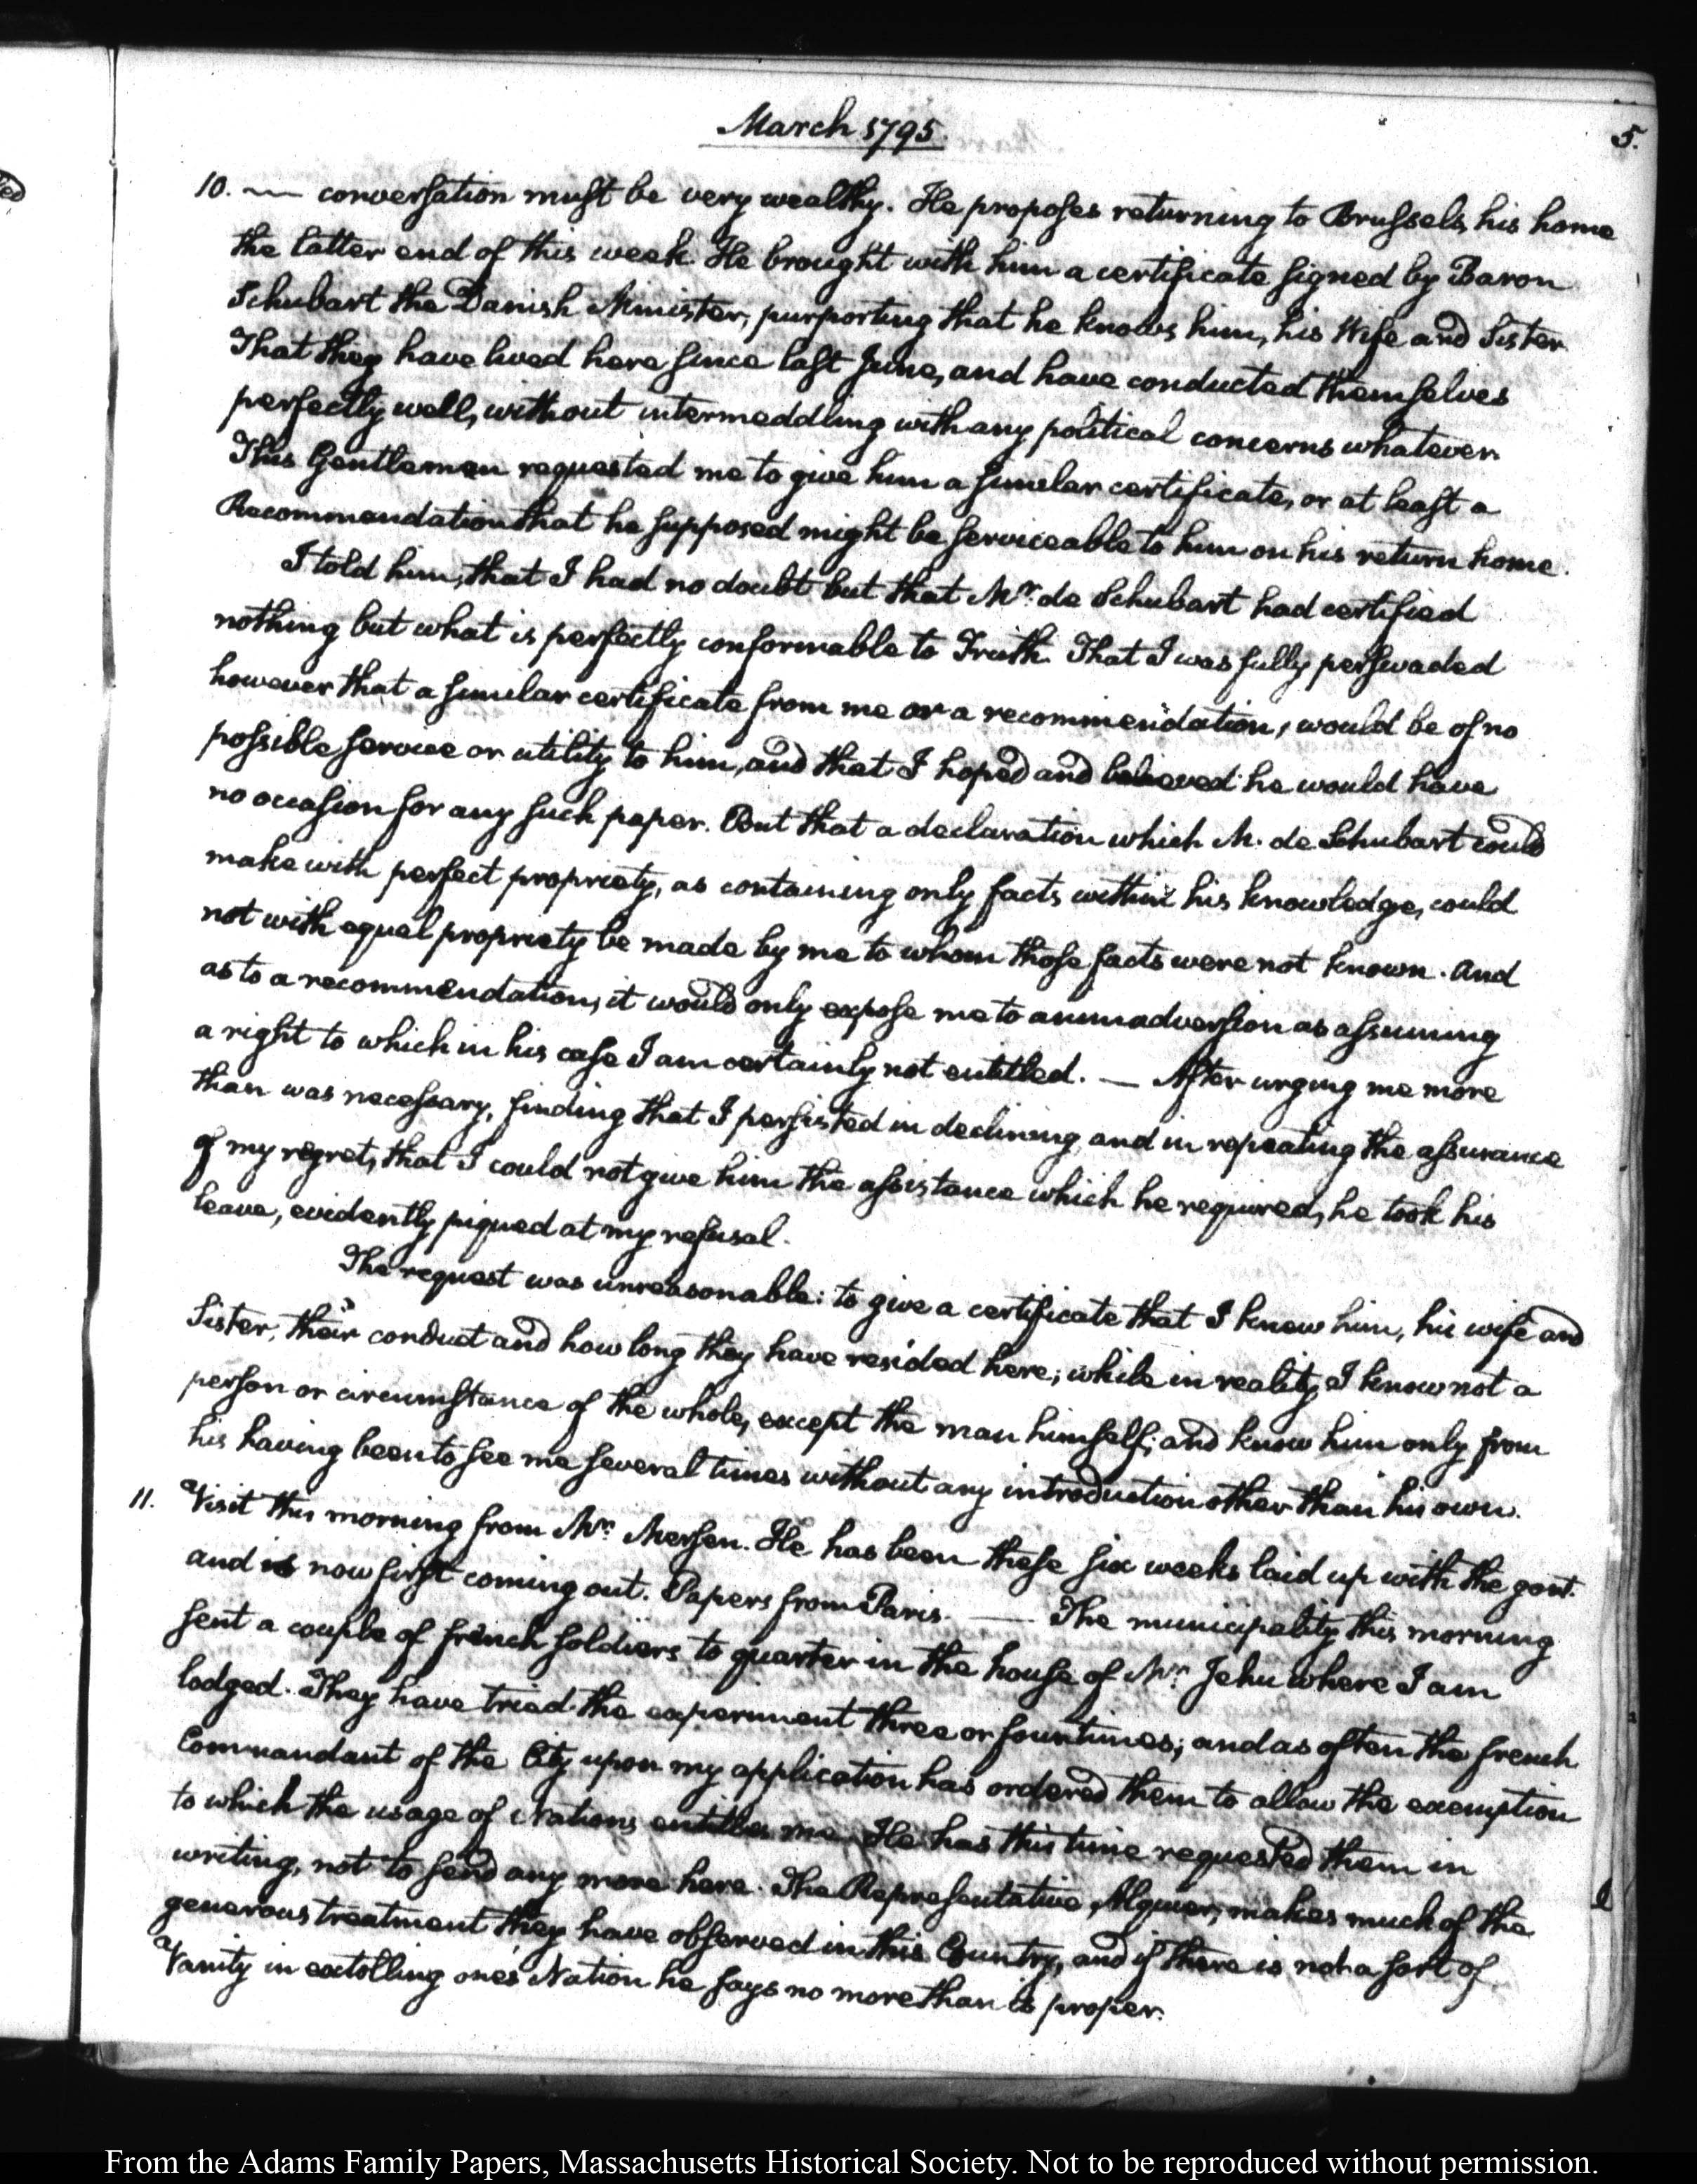 March 1795.
5.
10. — conversation must be very wealthy. He proposes returning to Brussels, his home
the latter end of this week. He brought with him a certificate signed by Baron
Schubart the Danish Minister, purporting that he knows him, his Wife and Sister.
That they have lived here since last June, and have conducted themselves
perfectly well, without intermeddling with any political concerns whatever.
This Gentleman requested me to give him a similar certificate, or at least a
Recommendation that he supposed might be serviceable to him on his return home.
I told him, that I had no doubt but that Mr. de Schubart had certified
nothing but what is perfectly conformable to Truth. That I was fully perswaded
however that a similar certificate from me or a recommendation, would be of no
possible service or utility to him, and that I hoped and believed he would have
no occasion for any such paper. But that a declaration which M. de Schubart could
make with perfect propriety, as containing only facts within his knowledge, could
not with equal propriety be made by me to whom those facts were not known. And
as to a recommendation, it would only expose me to animadversion as assuming
a right to which in his case I am certainly not entitled. — After urging me more
than was necessary, finding that I persisted in declining, and in repeating the assurance
of my regret, that I could not give him the assistance which he required, he took his
leave, evidently piqued at my refusal.
The request was unreasonable: to give a certificate that I knew him, his wife and
Sister, their conduct and how long they have resided here; while in reality I know not a
person or circumstance of the whole, except the man himself; and know him only from
his having been to see me several times without any introduction other than his own.
11. Visit this morning from Mr. Mersen. He has been these six weeks laid up with the gout.
and is now first coming out. Papers from Paris. — The municipality this morning
sent a couple of french soldiers to quarter in the house of Mr. Jehu where I am
lodged. They have tried the experiment three or four times; and as often the french
Commandant of the City upon my application has ordered them to allow the exemption
to which the usage of Nations entitles me. He has this time requested them in
writing, not to send any more here. The Representative, Alquier, makes much of the
generous treatment they have observed in this Country, and if there is not a sort of
Vanity in extolling one's Nation he says no more than is proper.
From the Adams Family Papers, Massachusetts Historical Society. Not to be reproduced without permission.